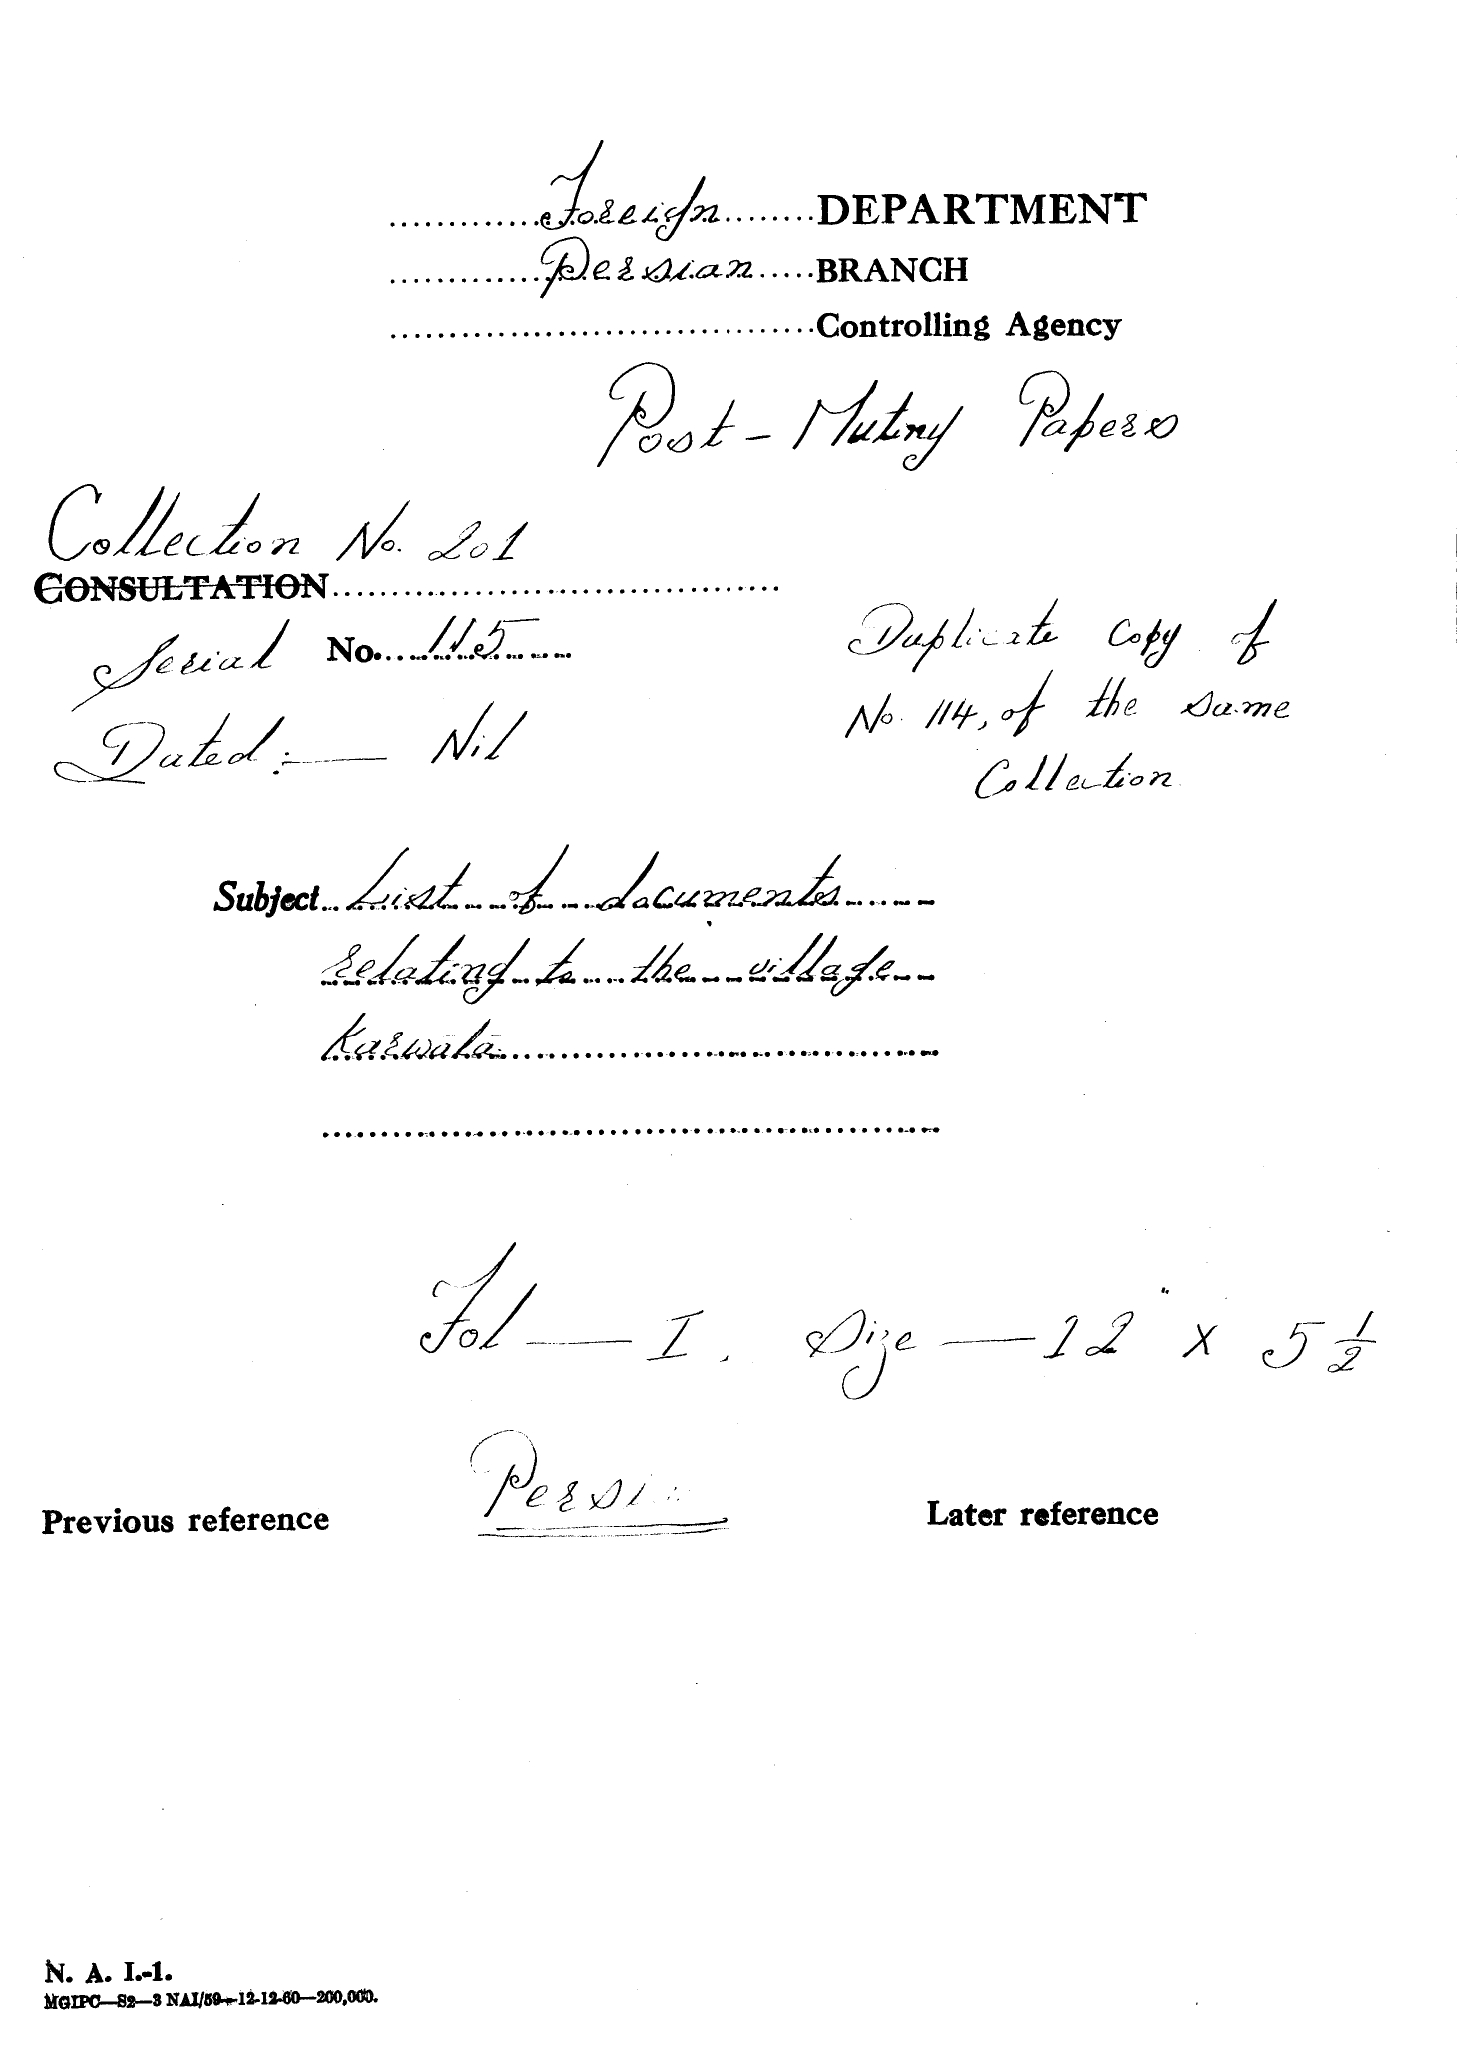 Foreign DEPARTMENT
Persian BRANCH
Controlling Agency
Post - Mutiny Papers
Collection No. 201
CONSULTATION
Serial No. 115
Duplicate Copy of
No. 114, of the same
Collection
Dated :— Nil
Subject List of documents
relating to the village
Karwala
Fol — I. Size — 12" x 5 1/2
Previous reference
Later reference
N. A. I.-1.
MGIPC—S2—3 NAI/59—12-12-60—200,000.